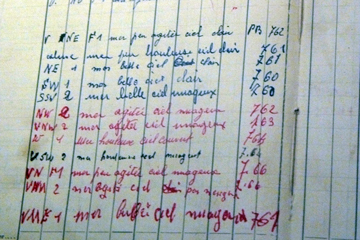 N NE F1 mer peu agitée ciel clair PB 762
calme mer peu houleuse ciel clair 761
NE 1 mer belle ciel clair 761
SW 1 mer belle ciel clair 760
SSW 2 mer belle ciel nuageux 760
NW 2 mer agitée ciel nuageux 762
VNW 2 mer agitée ciel nuageux 763
W 4 mer houleux ciel couvert 765
2 mer houleuse ciel nuageux 764
VN mer peu agitée ciel nuageux 766
VNW 2 mer agité ciel peu nuageux 766
1 mer belle ciel nuageux 767